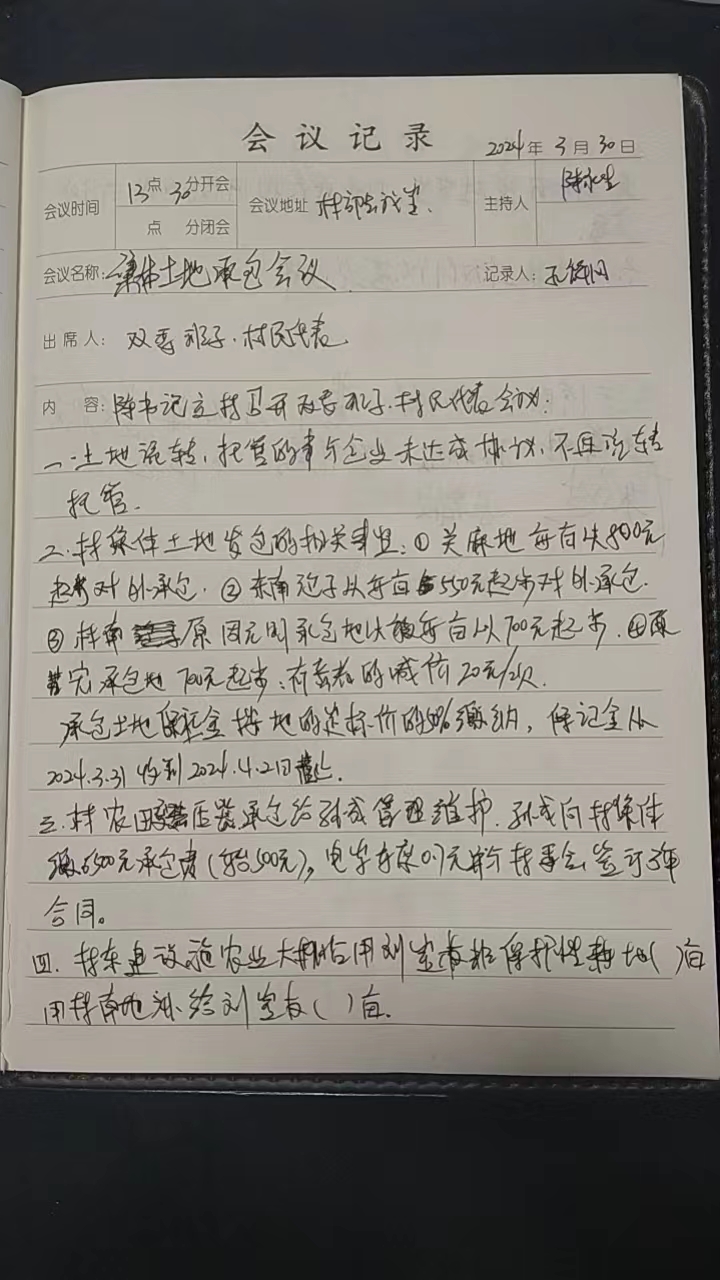 会议记录
2024年3月30日
会议时间 13点30分开会 会议地址 村部会议室. 主持人 陈永生
点 分闭会
会议名称: 集体土地承包会议 记录人:
出席人: 双委班子.村民代表
内容: 陈书记主持召开双委班子.村民代表会议:
一.土地流转,托管的事与企业未达成协议,不再流转
托管.
二.村集体土地发包的相关事宜:① 关麻地每亩以800元
起步对外承包. ② 东南泡子以每亩550元起步对外承包.
③ 村南 原 因元则承包地以每亩以700元起步. ④原
承包地 700元起步:有素者的减价20元/次.
承包土地保证金按地的达标价的5%缴纳, 保证金从
2024.3.31收到2024.4.2日截止.
三.村农田 压器承包给孙成管理维护.孙成向村集体
缴6500元承包费( 500元), 电字每 0.7元 村委会签订3年
合同。
四.村东建设施农业大棚占用刘宝 保护性耕地( )亩
用村南地补给刘宝 ( )亩.